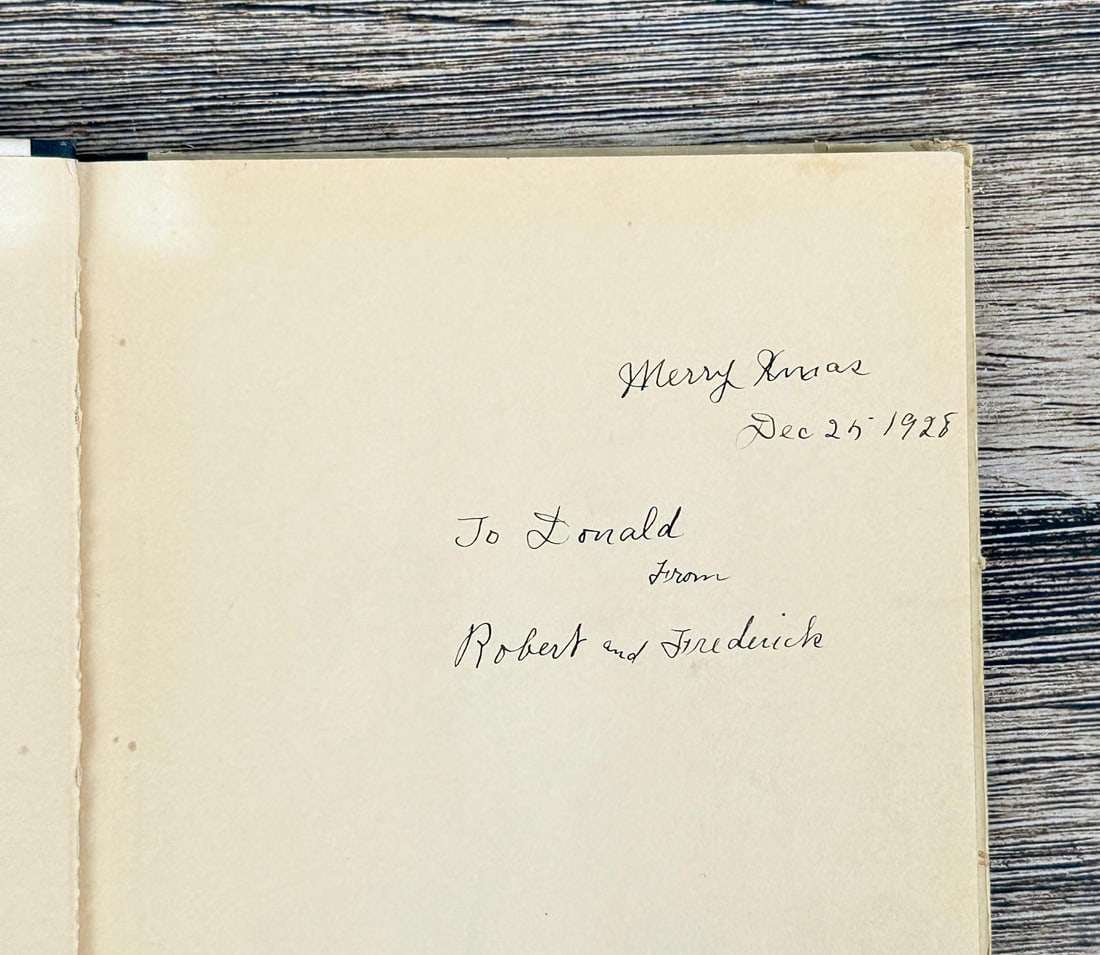 Merry Xmas
Dec 25 1928
To Donald
From
Robert and Frederick